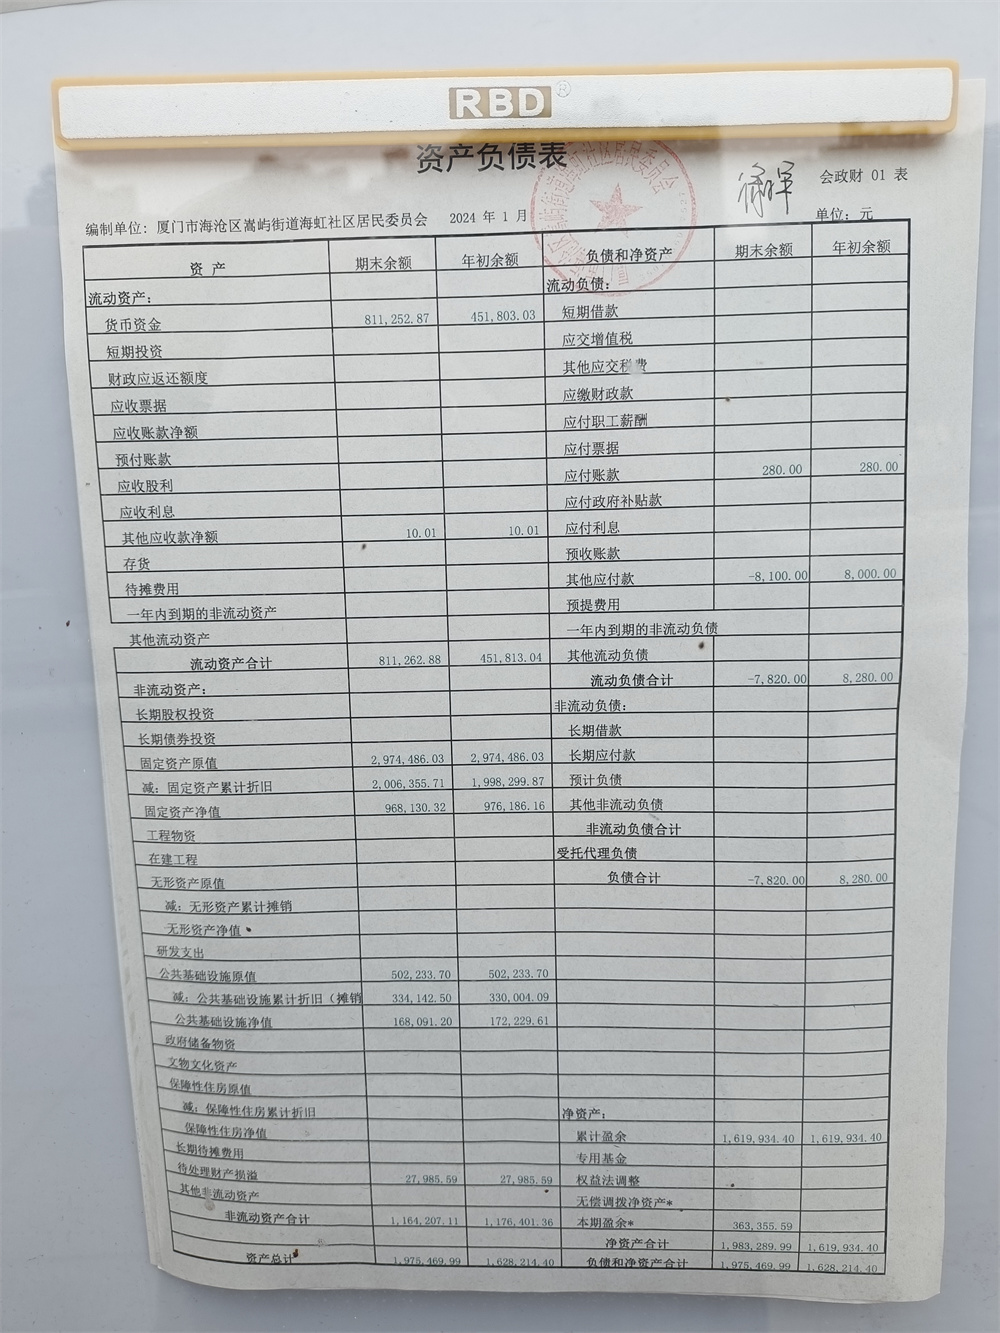 RBD®
资产负债表
会政财 01 表
编制单位: 厦门市海沧区嵩屿街道海虹社区居民委员会 2024 年 1 月 单位: 元
资 产 期末余额 年初余额 负债和净资产 期末余额 年初余额
流动资产: 流动负债:
货币资金 811,252.87 451,803.03 短期借款
短期投资 应交增值税
财政应返还额度 其他应交税费
应收票据 应缴财政款
应收账款净额 应付职工薪酬
预付账款 应付票据
应收股利 应付账款 280.00 280.00
应收利息 应付政府补贴款
其他应收款净额 10.01 10.01 应付利息
存货 预收账款
待摊费用 其他应付款 -8,100.00 8,000.00
一年内到期的非流动资产 预提费用
其他流动资产 一年内到期的非流动负债
流动资产合计 811,262.88 451,813.04 其他流动负债
非流动资产: 流动负债合计 -7,820.00 8,280.00
长期股权投资 非流动负债:
长期债券投资 长期借款
固定资产原值 2,974,486.03 2,974,486.03 长期应付款
减: 固定资产累计折旧 2,006,355.71 1,998,299.87 预计负债
固定资产净值 968,130.32 976,186.16 其他非流动负债
工程物资 非流动负债合计
在建工程 受托代理负债
无形资产原值 负债合计 -7,820.00 8,280.00
减: 无形资产累计摊销
无形资产净值
研发支出
公共基础设施原值 502,233.70 502,233.70
减: 公共基础设施累计折旧（摊销 334,142.50 330,004.09
公共基础设施净值 168,091.20 172,229.61
政府储备物资
文物文化资产
保障性住房原值
减: 保障性住房累计折旧 净资产:
保障性住房净值 累计盈余 1,619,934.40 1,619,934.40
长期待摊费用 专用基金
待处理财产损溢 27,985.59 27,985.59 权益法调整
其他非流动资产 无偿调拨净资产*
非流动资产合计 1,164,207.11 1,176,401.36 本期盈余* 363,355.59
净资产合计 1,983,289.99 1,619,934.40
资产总计 1,975,469.99 1,628,214.40 负债和净资产合计 1,975,469.99 1,628,214.40